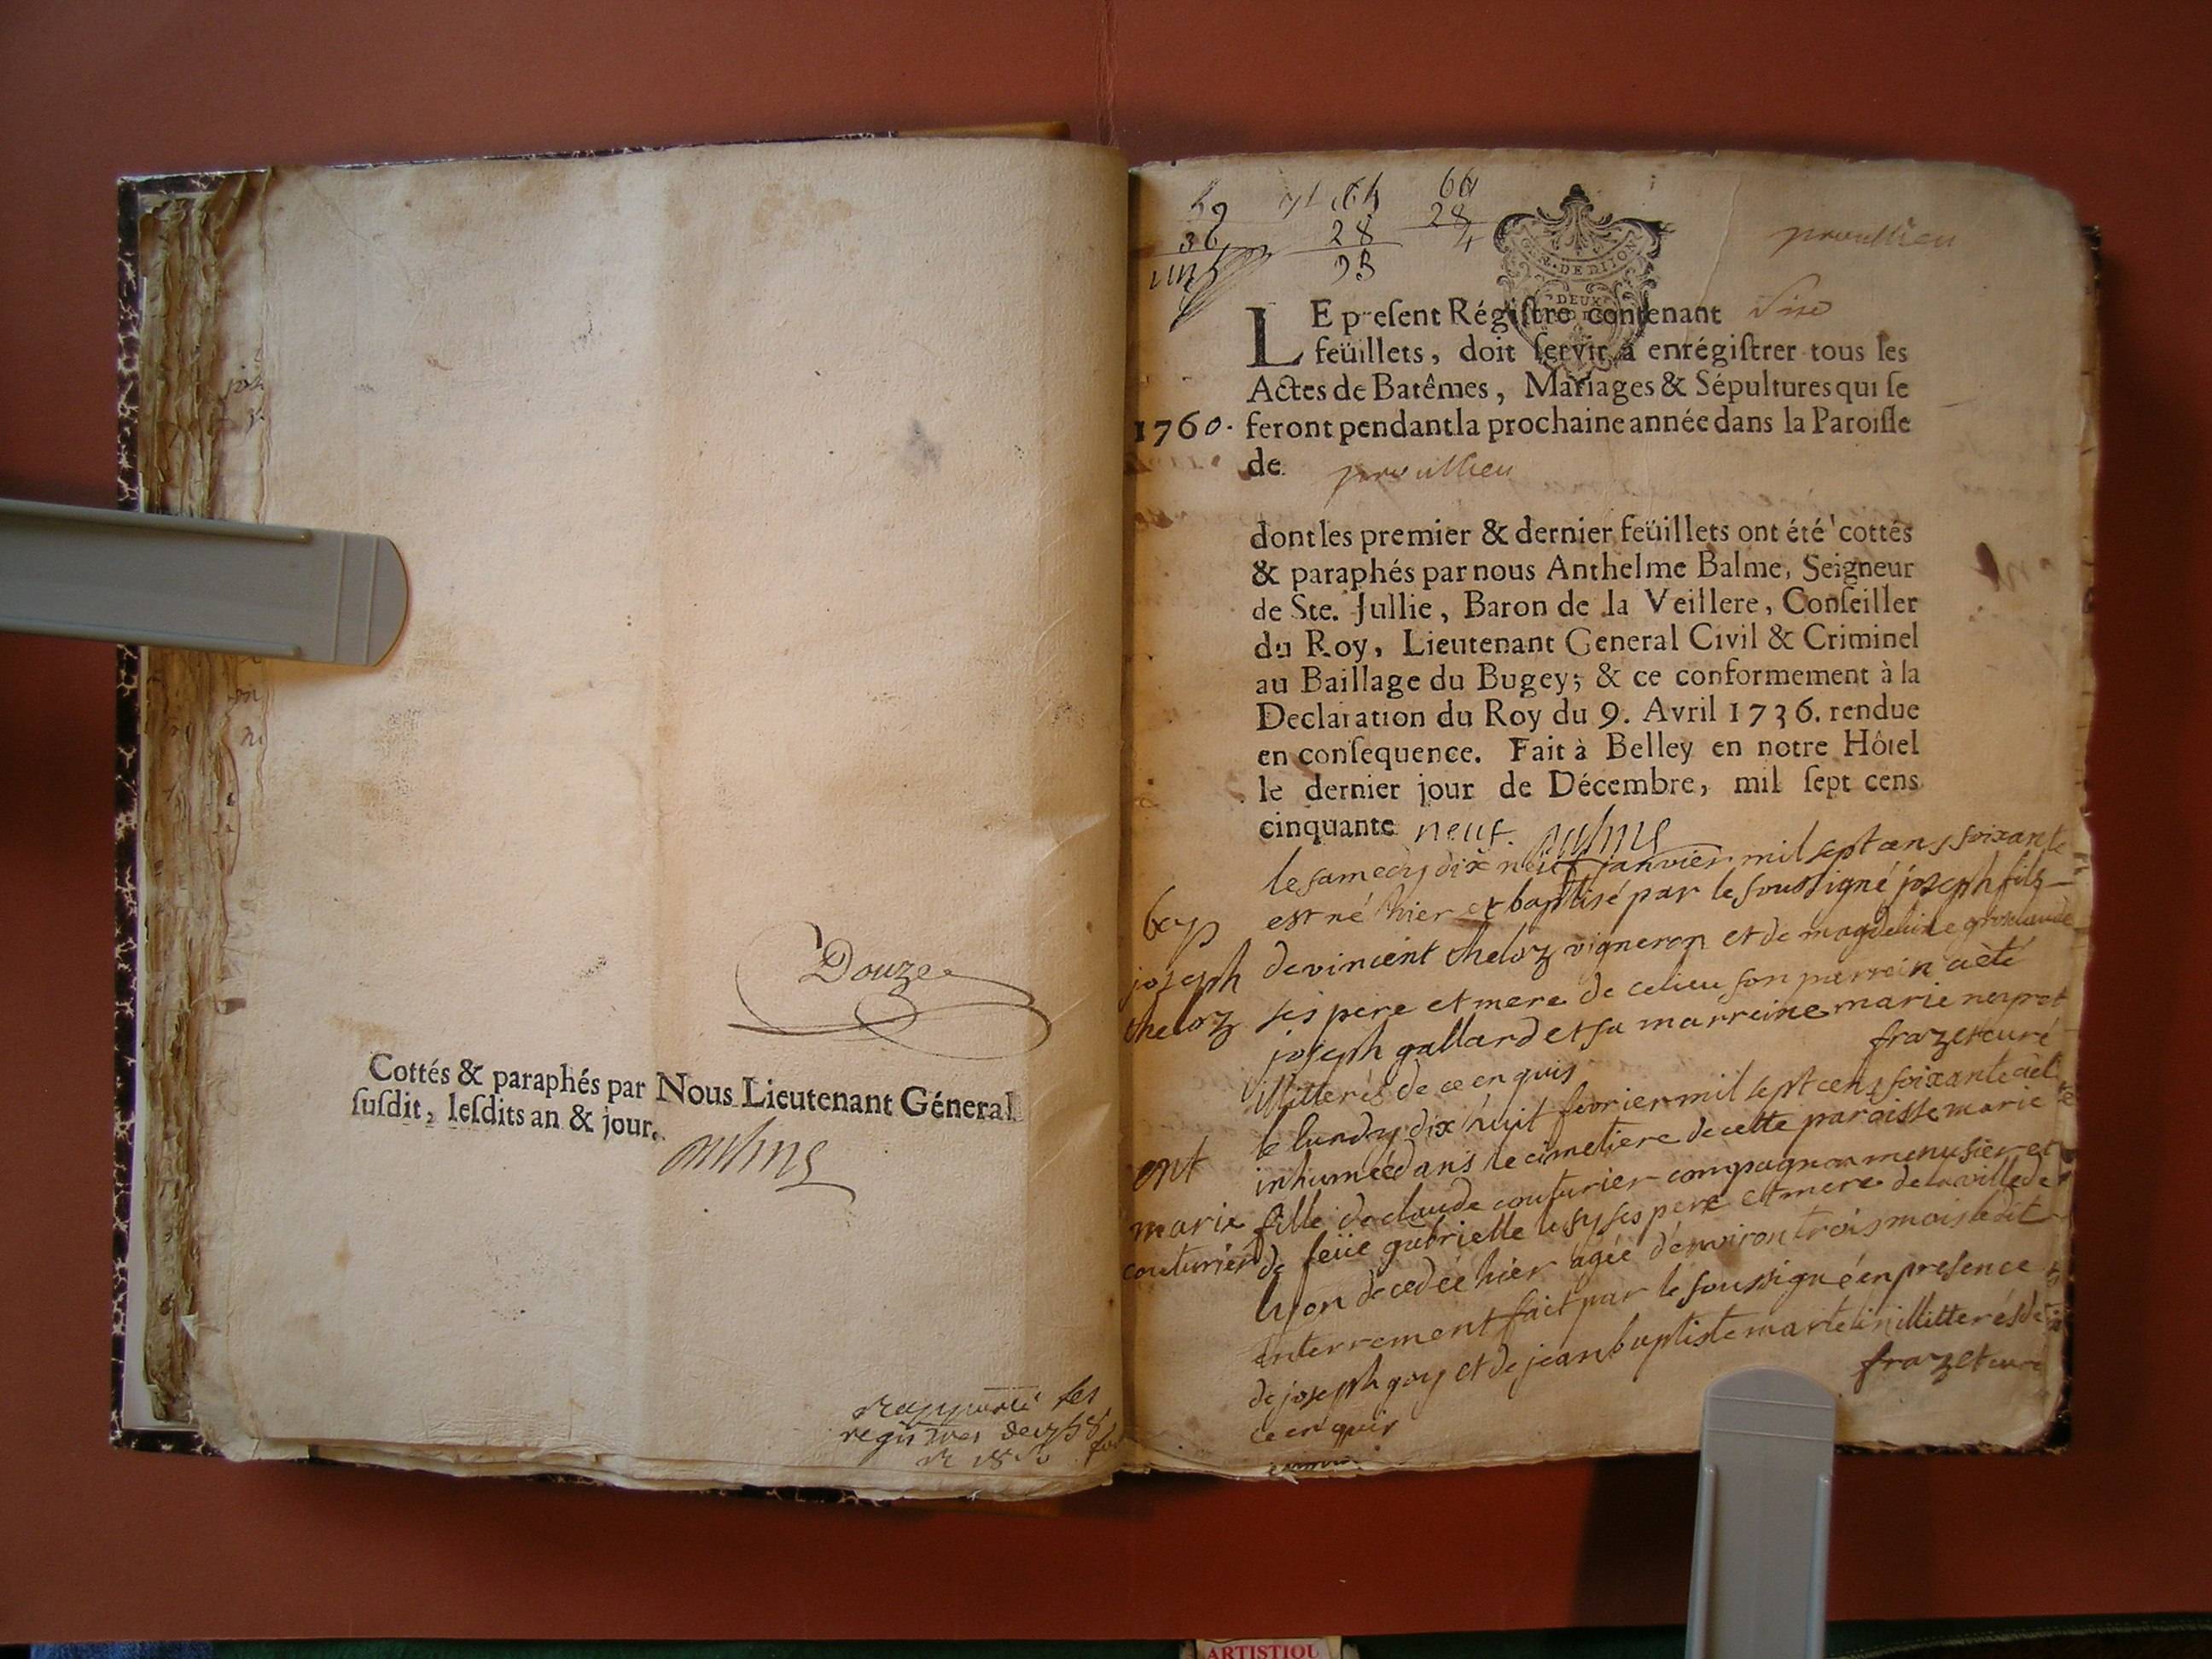 Douze
Cottés & paraphés par Nous Lieutenant Géneral
ſuſdit, leſdits an & jour.
rapporté les
registres de 1758
59
36
64
28
93
66
28
4
GÊN. DE DIJON
DEUX
proullieu
LE preſent Régiſtre contenant Six
feüillets, doit ſervir à enrégiſtrer tous les
Actes de Batêmes, Mariages & Sépultures qui ſe
1760. feront pendant la prochaine année dans la Paroiſſe
de proullieu
dont les premier & dernier feüillets ont été cottés
& paraphés par nous Anthelme Balme, Seigneur
de Ste. Jullie, Baron de la Veillere, Conſeiller
du Roy, Lieutenant General Civil & Criminel
au Baillage du Bugey; & ce conformement à la
Declaration du Roy du 9. Avril 1736. rendue
en conſequence. Fait à Belley en notre Hôtel
le dernier jour de Décembre, mil ſept cens
cinquante neuf.
le samedy dix neuf janvier mil sept cens soixante
bap est né hier et baptisé par le soussigné joseph fils
joseph de vincent theloz vigneron et de magdeleine
theloz ses pere et mere de ce lieu son parrein a été
joseph gallard et sa marreine marie neyret
illitterés de ce enquis frazet curé
le lundy dix huit fevrier mil sept cens soixante a été
ent inhumée dans le cimetiere de cette paroisse marie
marie fille de claude couturier compagnon menusier et
couturier de feüe gabrielle ses pere et mere de la ville de
lyon decedée hier agée d'environ trois mois ledit
enterrement fait par le soussigné en presence
de joseph goy et de jean baptiste martin illitterés de
ce enquis frazet curé
ARTISTIQU